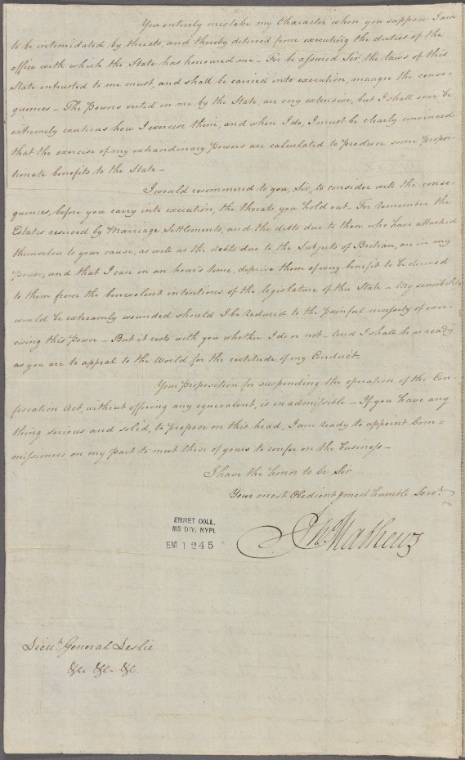 You entirely mistake my Character when you suppose I am
to be intimidated by threats, and thereby deterred from executing the duties of the
office with which the State has honoured me – For be assured Sir the laws of this
State intrusted to me must, and shall be carried into execution, maugre the conse-
quences – The Powers vested in me by the State, are very extensive, but I shall ever be
extremely cautious how I exercise them, and when I do, I must be clearly convinced
that the exercise of my extraordinary Powers are calculated to produce some propor-
tionate benefits to the State –
I would recommend to you, Sir, to consider well the conse-
quences, before you carry into execution, the threats you hold out. For remember the
Estates secured by Marriage Settlements, and the debts due to those who have attached
themselves to your cause, as well as the debts due to the Subjects of Britain, are in my
power, and that I can in an hour's time, deprive them of any benefit to be derived
to them from the benevolent intentions of the legislature of this State – My sensibility
would be extremely wounded should I be reduced to the painful necessity of exer-
cising this Power – But it rests with you whether I do or not – And I shall be as ready
as you are to appeal to the World for the rectitude of my Conduct
Your Proposition for suspending the operation of the Con-
fiscation Act, without offering any equivalent, is inadmissible – If you have any
thing serious and solid, to propose on this head, I am ready to appoint Com-
missioners on my part to meet those of yours to confer on the business –
I have the honor to be Sir
Your most Obedient & most humble Servt.
Jno. Mathews
EMMET COLL.
MS DIV. NYPL
EM 1245
Lieut. General Leslie
&c. &c. &c